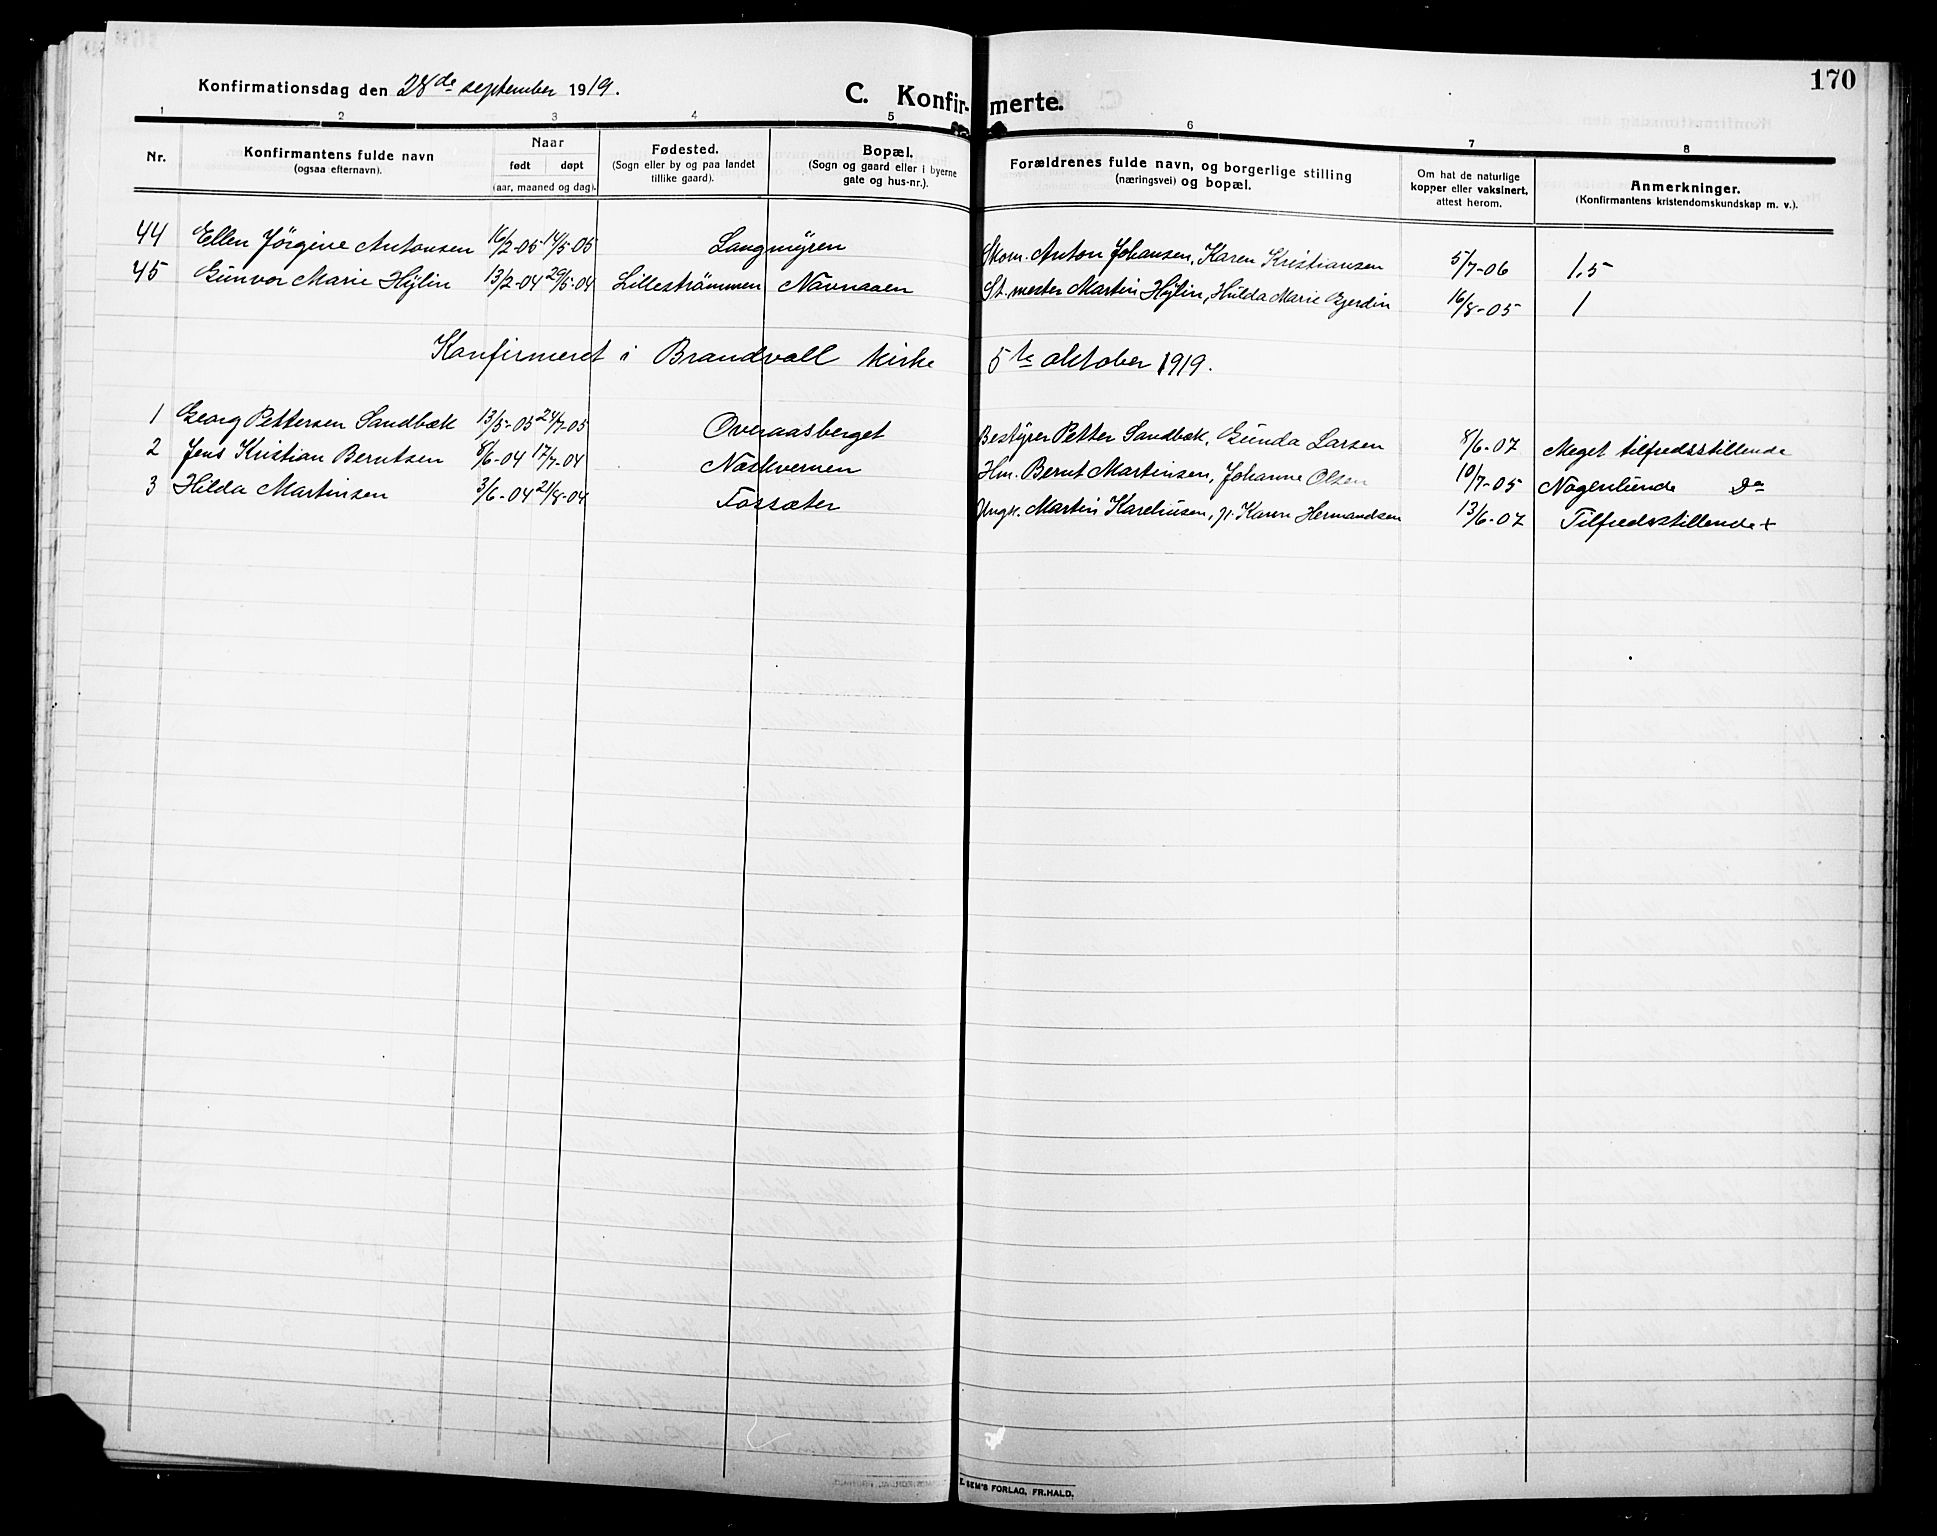 170
Konfirmationsdag den 28de september 1919.
C. Konfirmerte.
1 2 3 4 5 6 7 8
Nr.
Konfirmantens fulde navn (ogsaa efternavn).
Naar født døpt (aar, maaned og dag).
Fødested. (Sogn eller by og paa landet tillike gaard).
Bopæl. (Sogn og gaard eller i byerne gate og hus-nr.).
Forældrenes fulde navn, og borgerlige stilling (næringsvei) og bopæl.
Om hat de naturlige kopper eller vaksinert, attest herom.
Anmerkninger. (Konfirmantens kristendomskundskap m. v.).
44 Ellen Jørgine Antonsen 16/2-05 14/5-05 Langmyren Skom. Anton Johansen, Karen Kristiansen 5/7-06 1.5
45 Gunvor Marie Hylin 13/2-04 29/5-04 Lillestrømmen Navnaaen St.mester Martin Hylin, Hulda Marie Gjerdin 16/8-05 1
Konfirmeret i Brandvall kirke 5te oktober 1919.
1 Georg Pettersen Sandbæk 13/5-05 24/7-05 Overaasberget Bestyrer Petter Sandbæk, Gunda Larsen 8/6-07 Meget tilfredsstillende
2 Jens Kristian Berntsen 8/6-04 17/7-04 Næskvernen Hm. Bernt Martinsen, Johanne Olsen 10/7-05 Nogenlunde Do
3 Hilda Martinsen 3/6-04 21/8-04 Fossæter Ungk. Martin Karelinsen, p. Karen Hermandsen 13/6-07 Tilfredsstillende +
SEM'S FORLAG, FR.HALD.